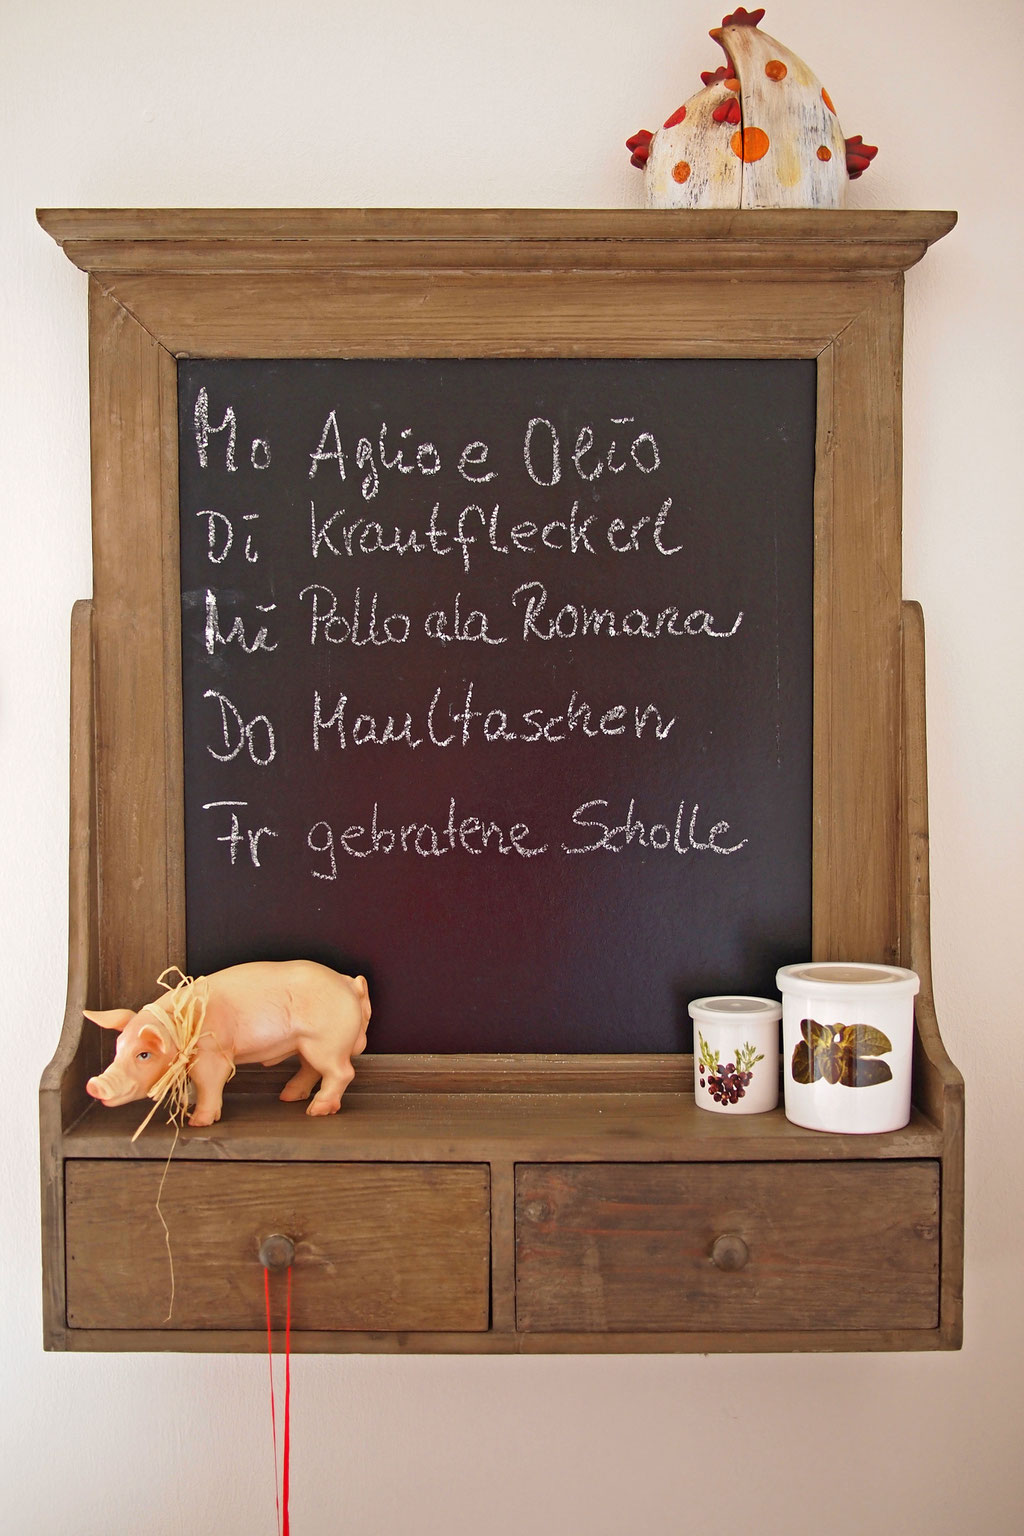 Mo Aglio e Olio
Di Krautfleckerl
Mi Pollo ala Romana
Do Maultaschen
Fr gebratene Scholle